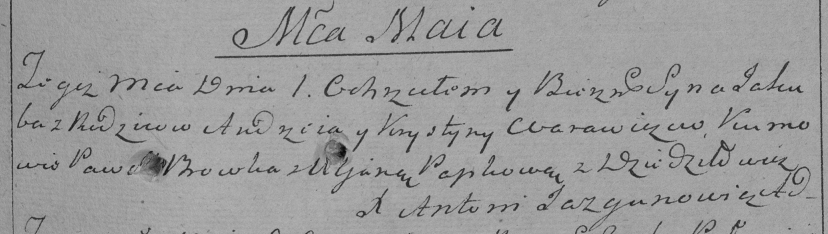 Mca Maia
Tegoż Mca Dnia 1. Ochrzciłem y Bierzm Syna Jaku
ba z Rodzicow Andrzeia y Krystyny Warawiczow, Kumo
wie Paweł Browka z Uljaną Papkową z Dziedziłowicz
X Antoni Jazgunowicz AD